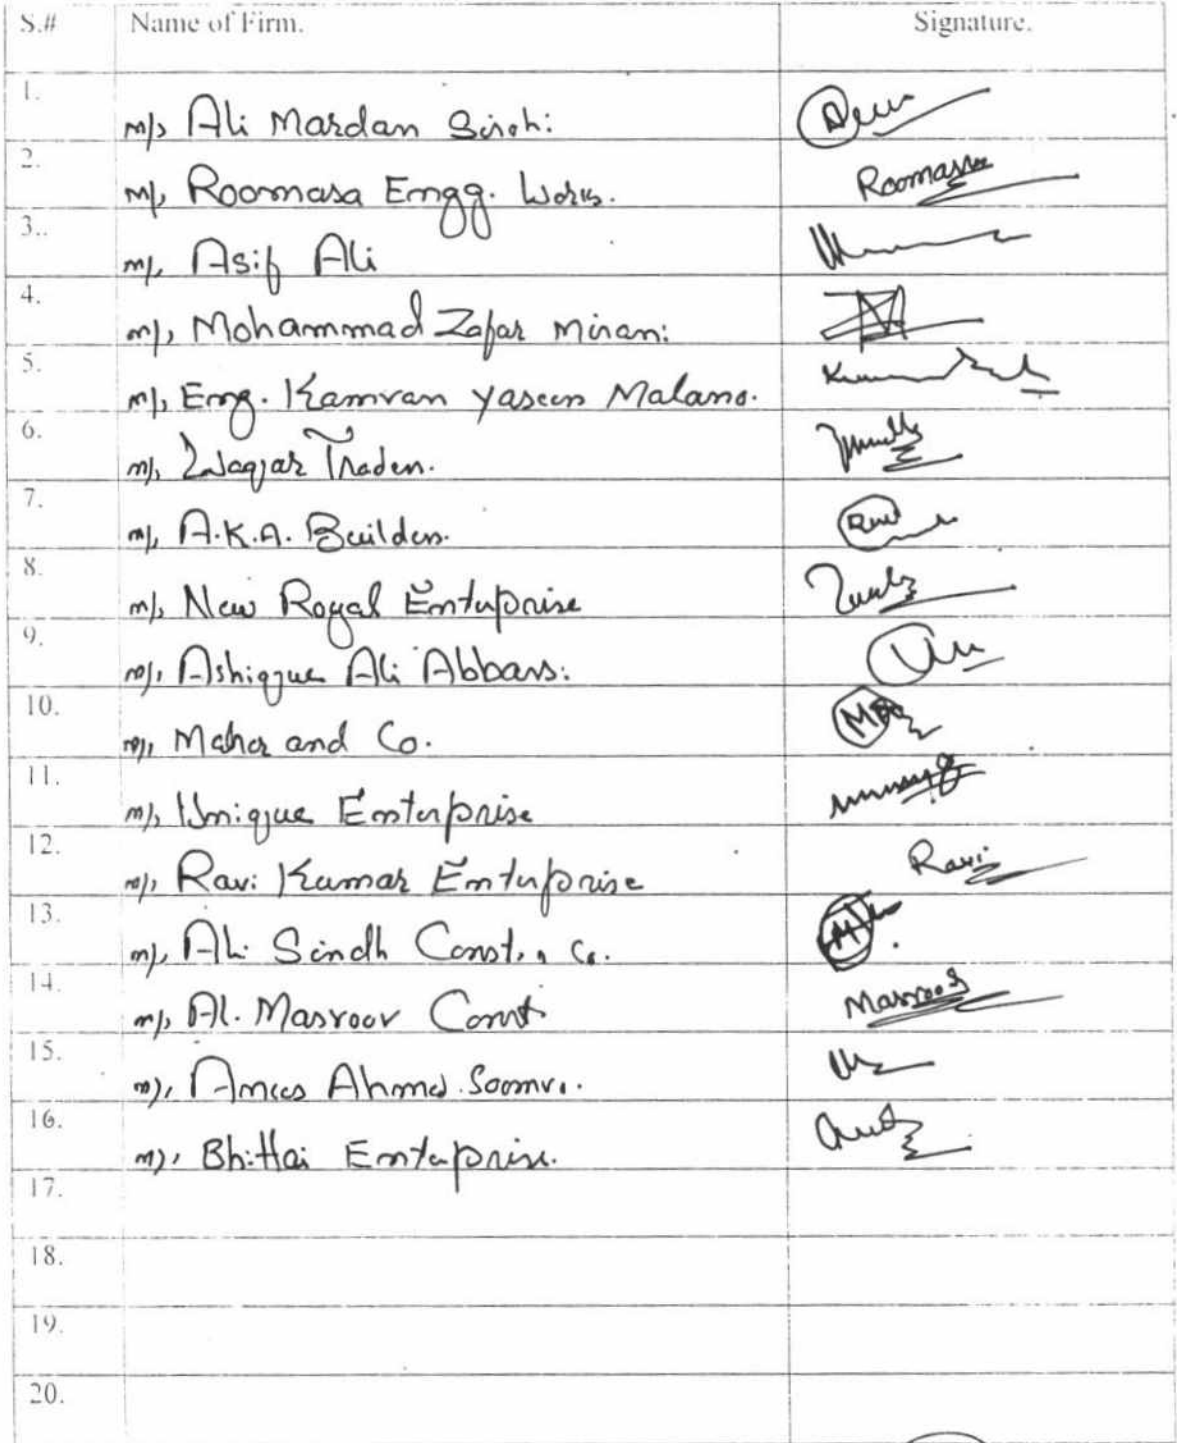 S.# Name of Firm. Signature.
1. m/s Ali Mardan
2. m/s Roomasa Engg. Works. Roomasa
3.. m/s Asif Ali
4. m/s Mohammad Zafar Mirani
5. m/s Eng. Kamran Yaseen Malano.
6. m/s Waqar Traders.
7. m/s A.K.A. Builders.
8. m/s New Royal Enterprise
9. m/s Ashiqque Ali Abbasi
10. m/s Maher and Co.
11. m/s Unique Enterprise
12. m/s Ravi Kumar Enterprise Ravi
13. m/s Ali Sindh Const. Co.
14. m/s Al. Masroor Const Masroor
15. m/s Anees Ahmed Soomro.
16. m/s Bhittai Enterprise.
17.
18.
19.
20.